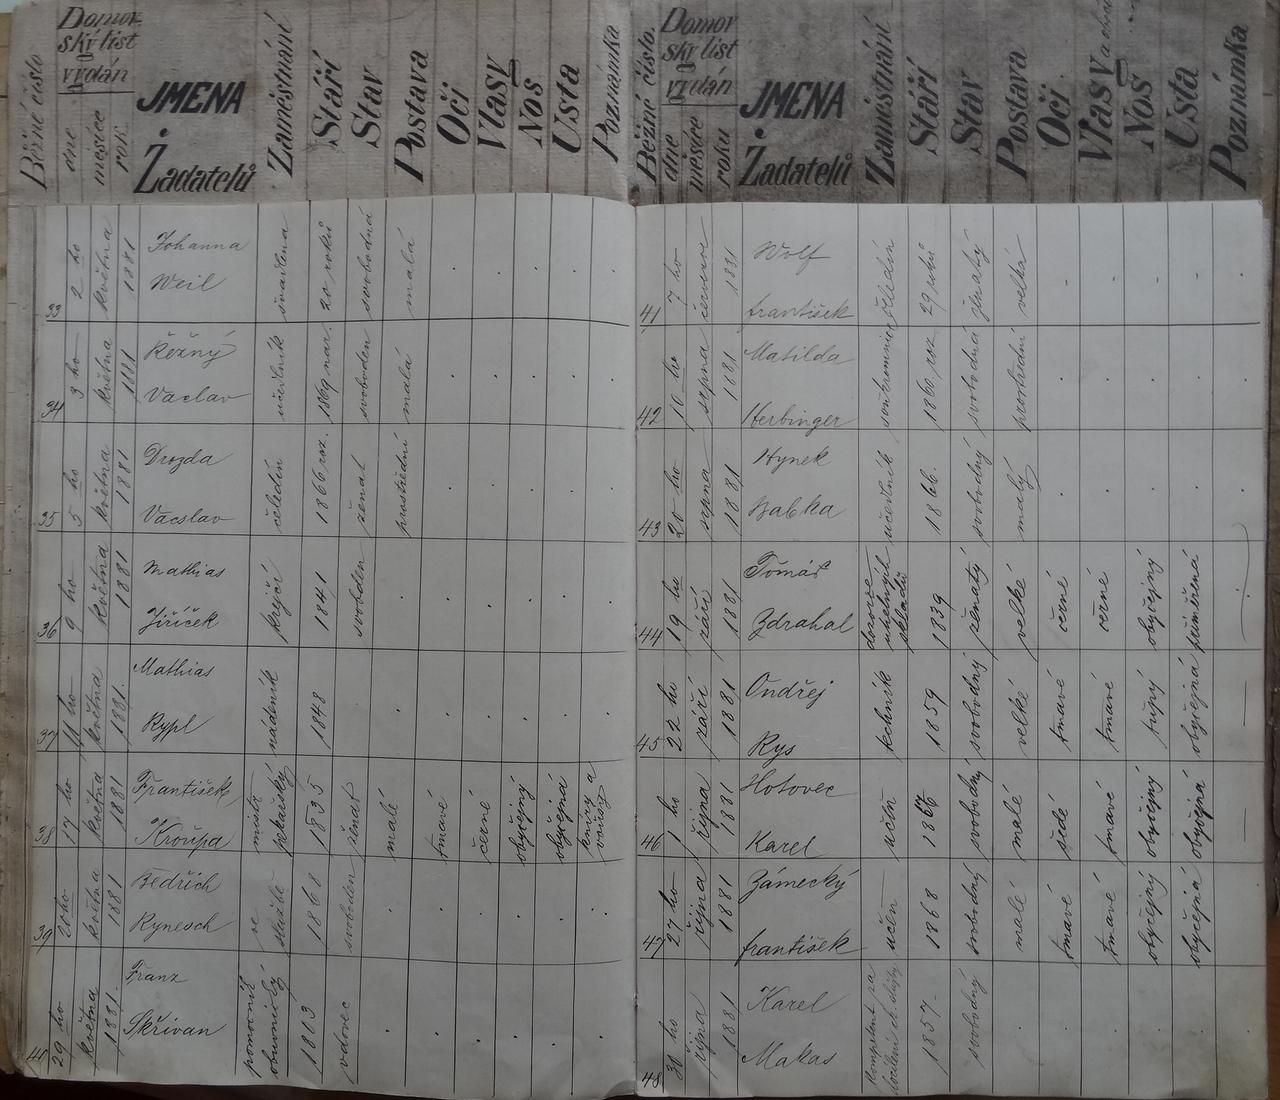 Běžné číslo
Domov
ský list
vydán
dne
měsíce
rok
JMENA
Žadatelů
Zaměstnání
Stáří
Stav
Postava
Oči
Vlasy
Nos
Usta
Poznámka
33 2 ho května 1881 Johanna Weil švadlena 20 roků svobodná malá
34 3 ho května 1881 Řežný Václav učedlník 1869 nar. svoboden malá
35 5 ho května 1881 Drozda Vácslav čeledín 1866 roz. ženat prostřední
36 9 ho května 1881 Mathias Jiříček krejčí 1841 svoboden
37 11 ho května 1881. Mathias Rypl nádeník 1848
38 17 ho května 1881 František Kroupa mistr pekařský 1835 ženat malé tmavé černé obyčejný obyčejná kníry a vousy
39 20 ho května 1881 Bedřich Rynesch ve 1868 svoboden
40 29 ho května 1881. Franz Skřivan pomocník obuvnický vdovec
Běžné číslo.
Domov
ský list
vydán
dne
měsíce
roku
JMENA
Žadatelů
Zaměstnání
Stáří
Stav
Postava
Oči
Vlasy
Nos
Usta
Poznámka
41 7 ho července 1881 Wolf František čeledín 29 roků ženatý velká
42 10 ho srpna 1881 Matilda Herbinger 1860 roz. svobodná prostřední
43 20 ho srpna 1881 Hynek Babka učedlník 1866. svobodný malý
44 19 ho září 1881 Tomáš Zdrahal dozorce uhelných skladů 1839 ženatý velké černé černé obyčejný přiměřená
45 22 ho září 1881 Ondřej Rys technik 1859 svobodný velké tmavé tmavé tupý obyčejná
46 1 ho října 1881 Hotovec Karel učen svobodný malé šedé tmavé obyčejný obyčejná
47 27 ho října 1881 Zámecký František učen 1868 svobodný malé tmavé tmavé obyčejný obyčejná
48 30 ho října 1881 Karel Makas kompetent za 1857 svobodný